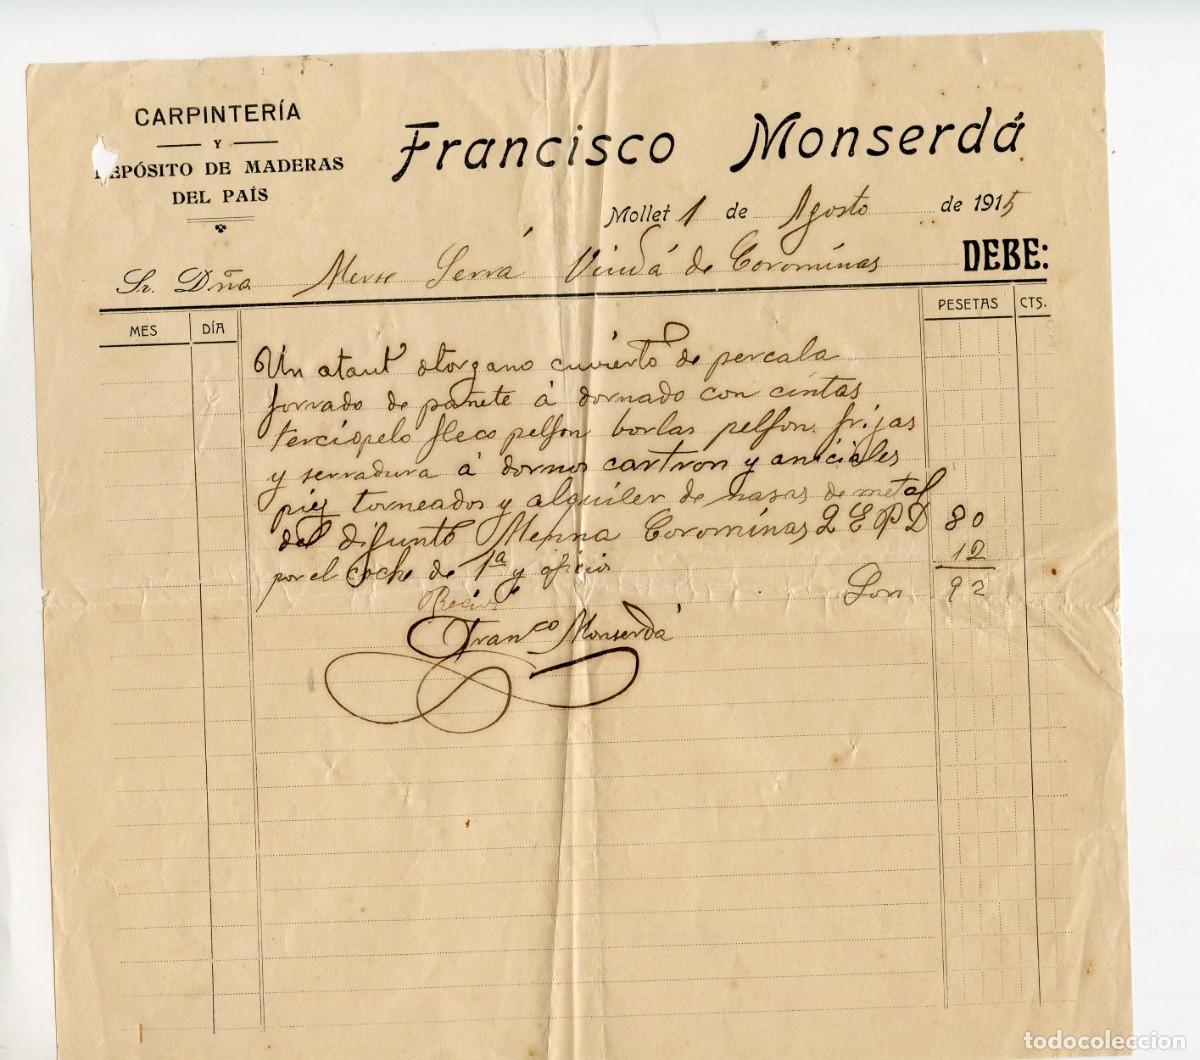 CARPINTERÍA
Y
EPÓSITO DE MADERAS
DEL PAÍS
Francisco Monserdá
Mollet 1 de Agosto de 1915
Sr. Dña Merse Serrá Viuda de Corominas DEBE:
MES DÍA PESETAS CTS.
Un ataut otorgano cuvierto de percala
forrado de pañete á dornado con cintas
terciopelo fleco pelfon borlas pelfon. frijas
y serradura á dornos cartron y aniciales
piez torneados y alquiler de nasas de metal
del difunto Menna Corominas Q E P D 80
por el coche de 1ª y oficio 12
Son 92
Recivi
Franco Monserdá
todocoleccion